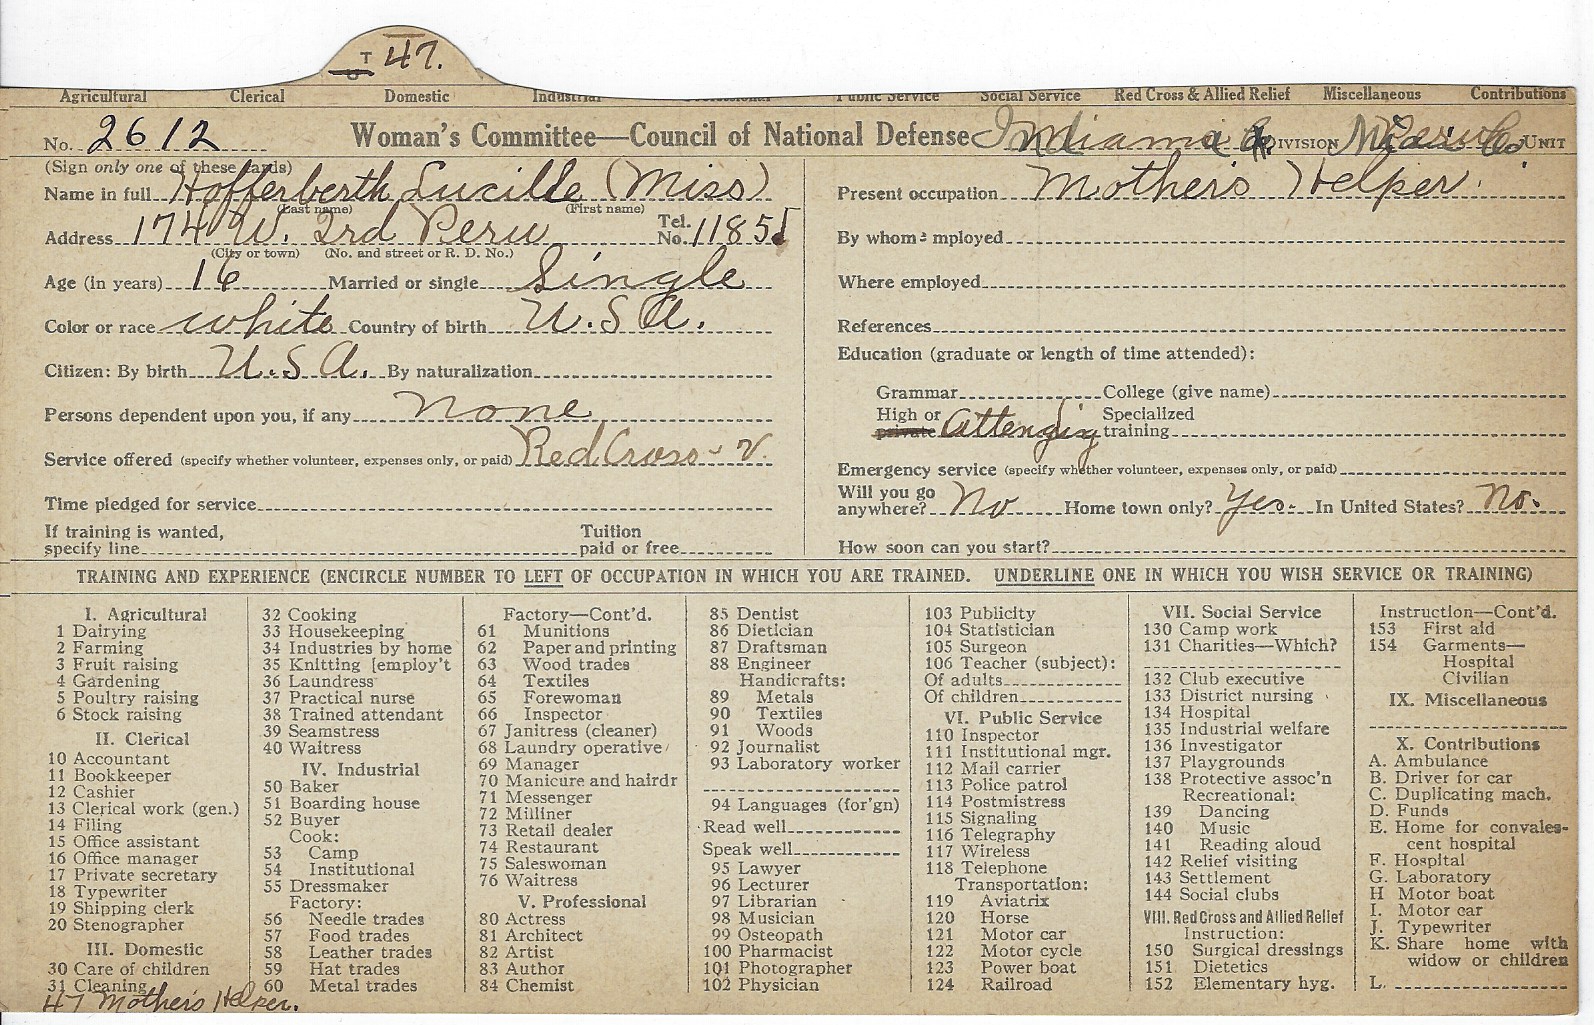 T 47.
Agricultural Clerical Domestic Industrial Professional Public Service Social Service Red Cross & Allied Relief Miscellaneous Contributions
No. 2612 Woman's Committee—Council of National Defense Indiana DIVISION UNIT
(Sign only one of these cards)
Name in full Hofferberth Lucille (Miss)
(Last name) (First name)
Address 174 W. 3rd Peru Tel. No. 11855
(City or town) (No. and street or R. D. No.)
Age (in years) 16 Married or single Single
Color or race white Country of birth U.S.A.
Citizen: By birth U.S.A. By naturalization
Persons dependent upon you, if any none
Service offered (specify whether volunteer, expenses only, or paid) Red Cross - V.
Time pledged for service
If training is wanted, specify line Tuition paid or free
Present occupation Mother's Helper.
By whom employed
Where employed
References
Education (graduate or length of time attended):
Grammar College (give name)
High or private Attending Specialized training
Emergency service (specify whether volunteer, expenses only, or paid)
Will you go anywhere? No Home town only? Yes. In United States? No.
How soon can you start?
TRAINING AND EXPERIENCE (ENCIRCLE NUMBER TO LEFT OF OCCUPATION IN WHICH YOU ARE TRAINED. UNDERLINE ONE IN WHICH YOU WISH SERVICE OR TRAINING)
I. Agricultural
1 Dairying
2 Farming
3 Fruit raising
4 Gardening
5 Poultry raising
6 Stock raising
II. Clerical
10 Accountant
11 Bookkeeper
12 Cashier
13 Clerical work (gen.)
14 Filing
15 Office assistant
16 Office manager
17 Private secretary
18 Typewriter
19 Shipping clerk
20 Stenographer
III. Domestic
30 Care of children
31 Cleaning
47 Mother's Helper.
32 Cooking
33 Housekeeping
34 Industries by home
35 Knitting [employ't
36 Laundress
37 Practical nurse
38 Trained attendant
39 Seamstress
40 Waitress
IV. Industrial
50 Baker
51 Boarding house
52 Buyer
Cook:
53 Camp
54 Institutional
55 Dressmaker
Factory:
56 Needle trades
57 Food trades
58 Leather trades
59 Hat trades
60 Metal trades
Factory—Cont'd.
61 Munitions
62 Paper and printing
63 Wood trades
64 Textiles
65 Forewoman
66 Inspector
67 Janitress (cleaner)
68 Laundry operative
69 Manager
70 Manicure and hairdr
71 Messenger
72 Milliner
73 Retail dealer
74 Restaurant
75 Saleswoman
76 Waitress
V. Professional
80 Actress
81 Architect
82 Artist
83 Author
84 Chemist
85 Dentist
86 Dietician
87 Draftsman
88 Engineer
Handicrafts:
89 Metals
90 Textiles
91 Woods
92 Journalist
93 Laboratory worker
94 Languages (for'gn)
Read well
Speak well
95 Lawyer
96 Lecturer
97 Librarian
98 Musician
99 Osteopath
100 Pharmacist
101 Photographer
102 Physician
103 Publicity
104 Statistician
105 Surgeon
106 Teacher (subject):
Of adults
Of children
VI. Public Service
110 Inspector
111 Institutional mgr.
112 Mail carrier
113 Police patrol
114 Postmistress
115 Signaling
116 Telegraphy
117 Wireless
118 Telephone
Transportation:
119 Aviatrix
120 Horse
121 Motor car
122 Motor cycle
123 Power boat
124 Railroad
VII. Social Service
130 Camp work
131 Charities—Which?
132 Club executive
133 District nursing
134 Hospital
135 Industrial welfare
136 Investigator
137 Playgrounds
138 Protective assoc'n
Recreational:
139 Dancing
140 Music
141 Reading aloud
142 Relief visiting
143 Settlement
144 Social clubs
VIII. Red Cross and Allied Relief
Instruction:
150 Surgical dressings
151 Dietetics
152 Elementary hyg.
Instruction—Cont'd.
153 First aid
154 Garments—
Hospital
Civilian
IX. Miscellaneous
X. Contributions
A. Ambulance
B. Driver for car
C. Duplicating mach.
D. Funds
E. Home for convales-
cent hospital
F. Hospital
G. Laboratory
H Motor boat
I. Motor car
J. Typewriter
K. Share home with
widow or children
L.